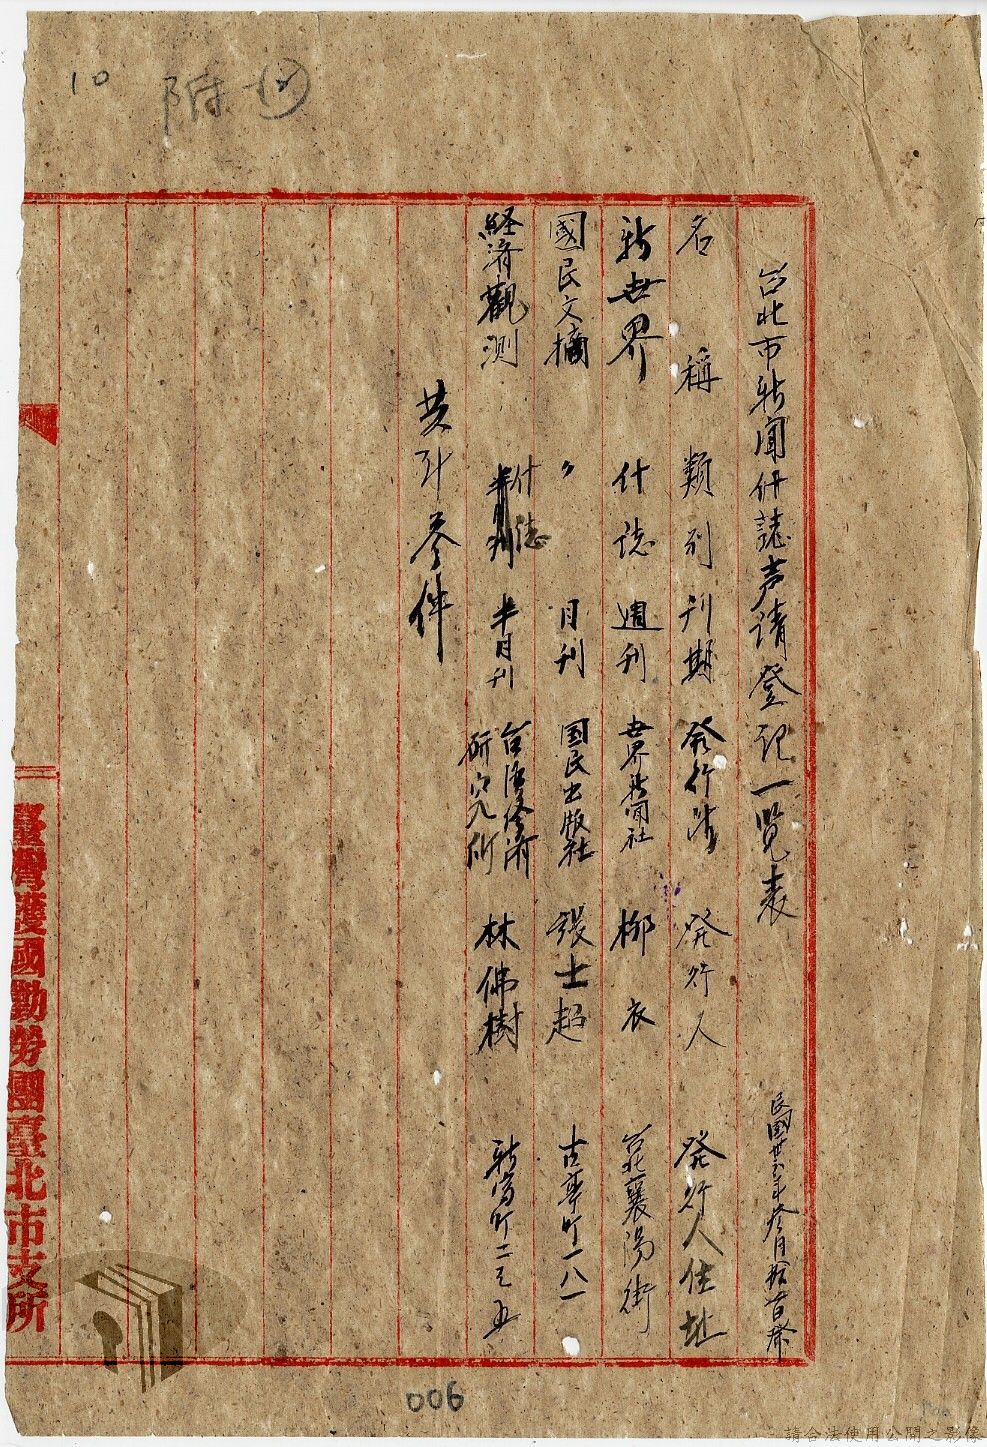 10
附
台北市新聞什誌声請登記一覧表
民國卅五年參月
名稱 類別 刊期 発行所 発行人 発行人住址
新世界 什誌 週刊 世界新聞社 柳衣 台北襄陽街
國民文摘 〃 月刊 国民出版社 張士超 古亭町一八一
経済觀測 什誌 半月刊 台湾经済研究所 林佛樹 新富町二ノ五
共計參件
臺灣護國勤勞團臺北市支所
006
請合法使用公開之影像